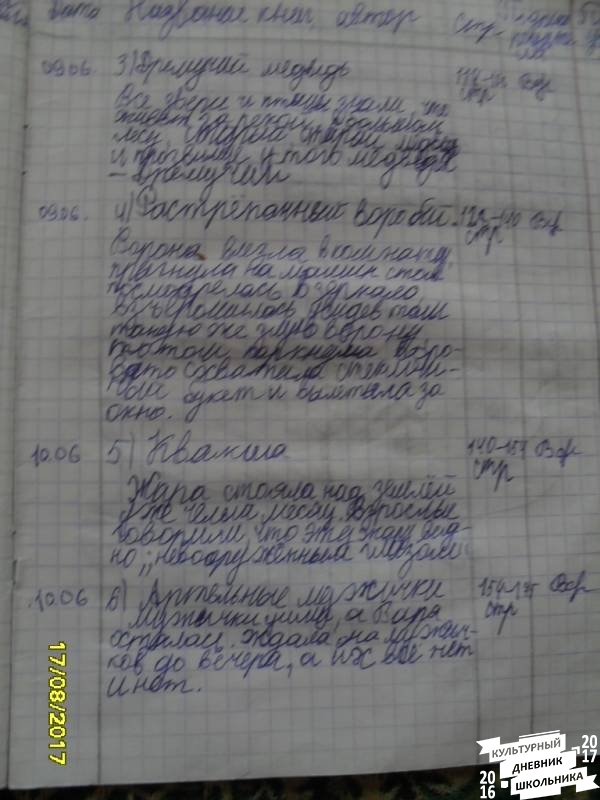 Дата Название книг, автор стр
09.06. 3) Дремучий медведь стр Вор
Все звери и птицы знали, что
живёт за рекой, в большом
лесу, старый
и прозвище у того медведя
– Дремучий
09.06. 4) Растрёпанный воробей. стр Вор
Ворона влезла в комнату
прыгнула на мамин стол
посмотрелась в зеркало
взъерошилась увидев там
такую же злую ворону
потом каркнула воро-
вато схватила стеклян-
ный букет и вылетела за
окно.
10.06 5) Квакша стр Вор
Жара стояла над землёй
уже целый месяц. Взрослые
говорили, что эту жару вид-
но „невооружённым глазом
10.06 6) Артельные мужички стр Вор
Мужички ушли, а Варя
осталась. Ждала она мужич-
ков до вечера, а их всё нет
и нет.
17/08/2017
КУЛЬТУРНЫЙ
ДНЕВНИК
ШКОЛЬНИКА
2016
2017